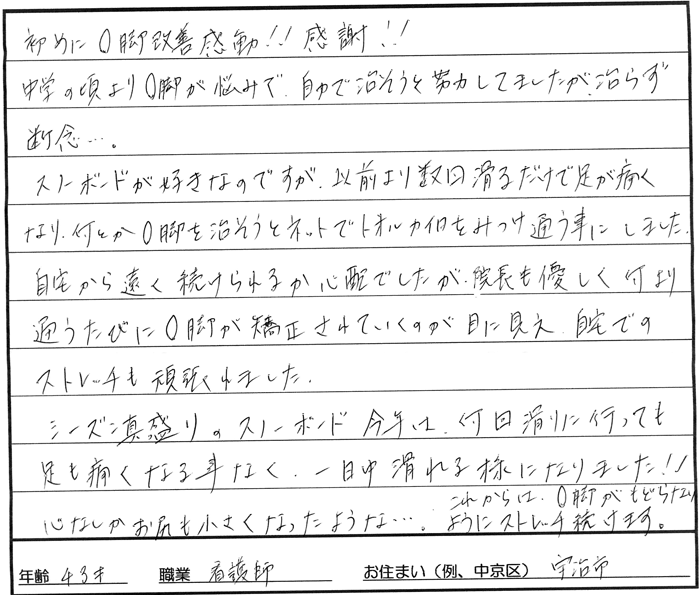 初めにO脚改善感動!!感謝!!
中学の頃よりO脚が悩みで、自力で治そうと努力してましたが、治らず
断念…。
スノーボードが好きなのですが、以前より数回滑るだけで足が痛く
なり、何とかO脚を治そうとネットでトオルカイロをみつけ通う事にしました。
自宅から遠く続けられるか心配でしたが、院長も優しく何より
通うたびにO脚が矯正されていくのが目に見え、自宅での
ストレッチも頑張れました。
シーズン真盛りのスノーボード今年は、何回滑りに行っても
足も痛くなる事なく、一日中滑れる様になりました!!
心なしかお尻も小さくなったような…。これからは、O脚がもどらない
ようにストレッチ続けます。
年齢 43才 職業 看護師 お住まい（例、中京区） 宇治市